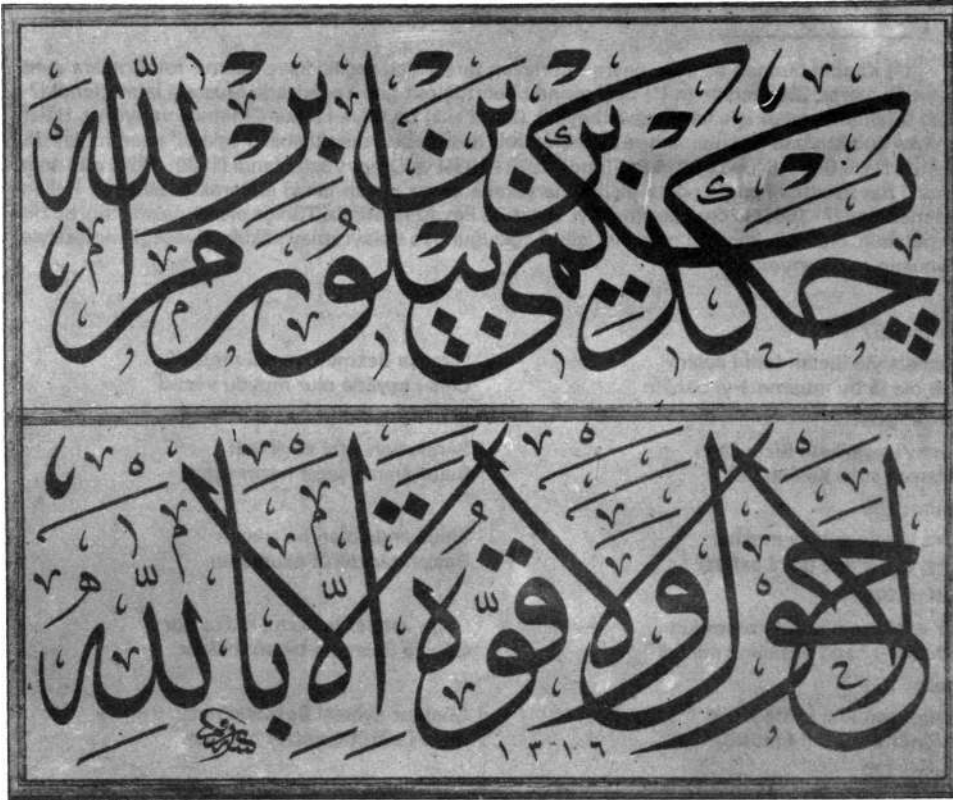 چكديكمی بر بن بيلورم بر الله
لا حول ولا قوة الا بالله
١٣١٦